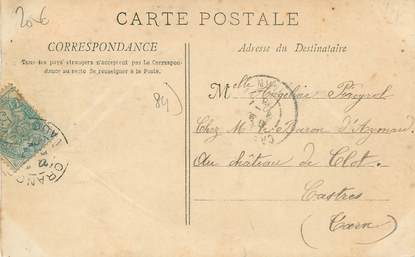 20€
CARTE POSTALE
CORRESPONDANCE
Tous les pays étrangers n'acceptent pas la Correspon-
dance au recto (Se renseigner à la Poste).
Adresse du Destinataire
84)
Melle Angéline Peyrol
Chez M. le Baron d'
Au château de Clot.
Castres
(Tarn)
ORANGE